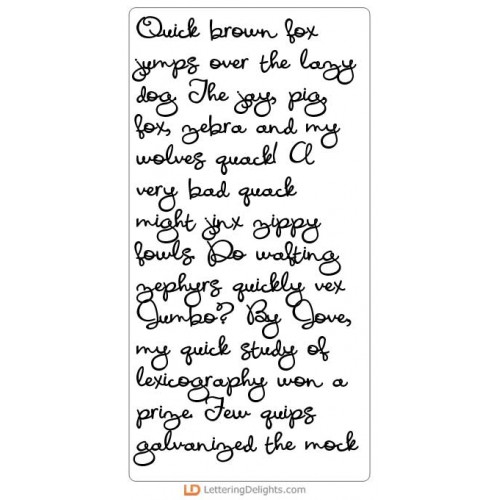 Quick brown fox
jumps over the lazy
dog. The jay, pig,
fox, zebra and my
wolves quack! A
very bad quack
might jinx zippy
fowls. Do wafting
zephyrs quickly vex
Jumbo? By Jove,
my quick study of
lexicography won a
prize. Few quips
galvanized the mock
LD LetteringDelights.com